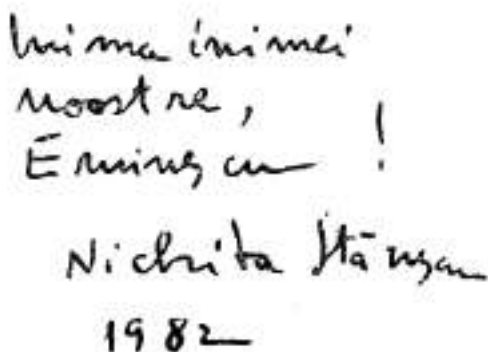 Inima inimei
noastre,
Eminescu !
Nichita Stănescu
1982